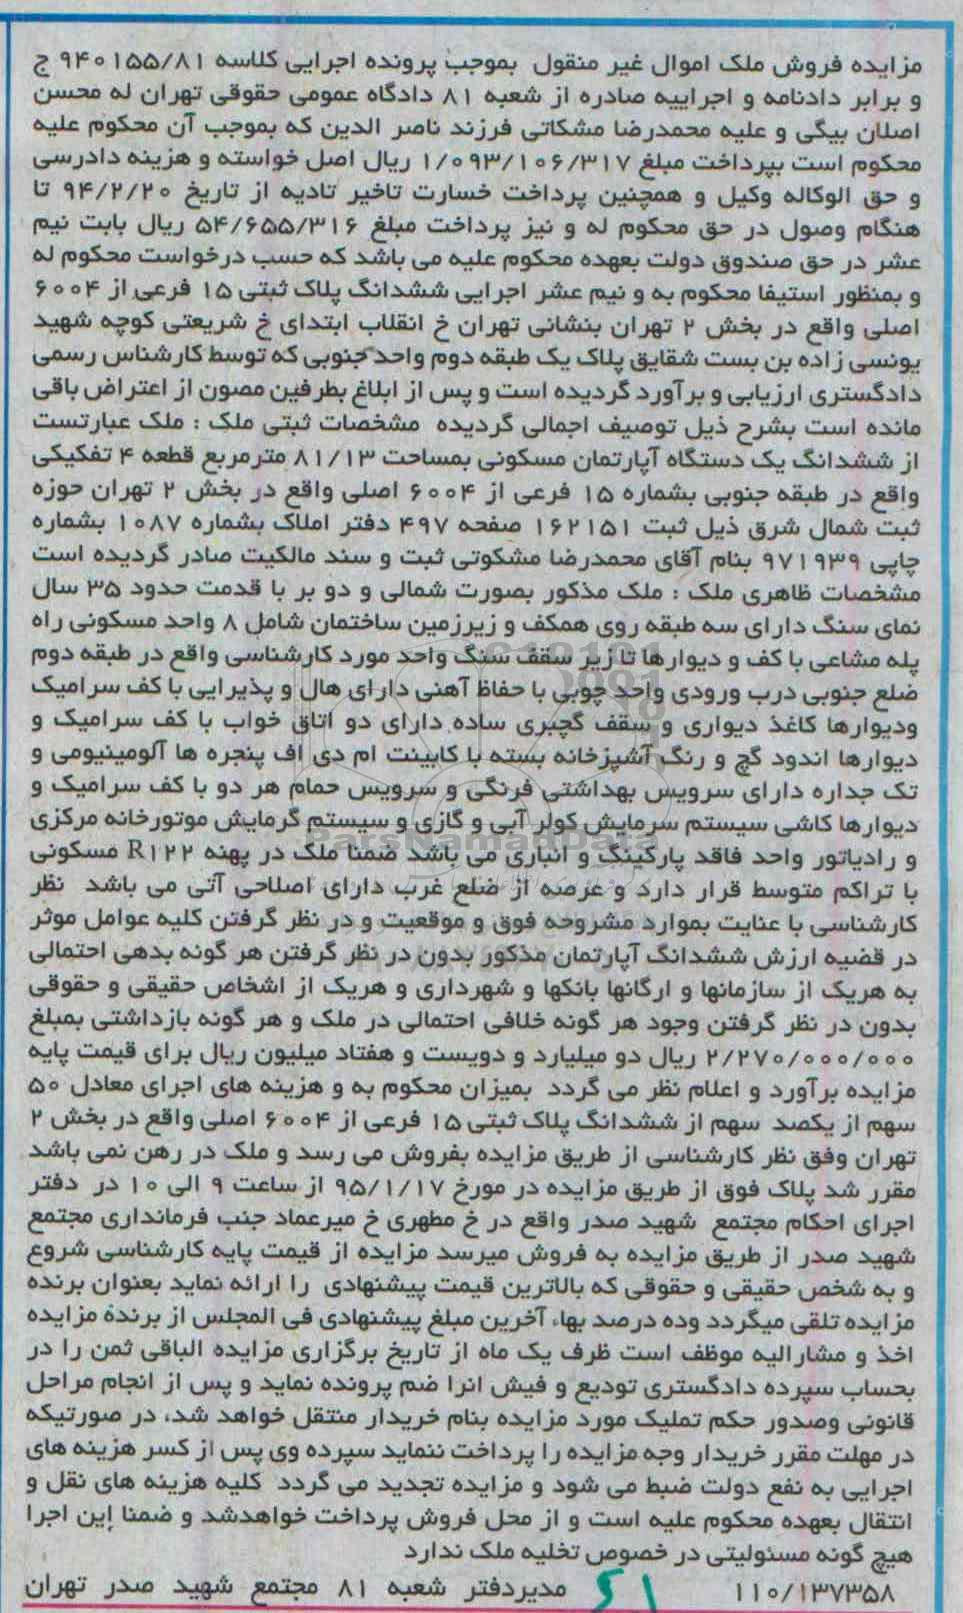 مزایده فروش ملک اموال غیر منقول بموجب پرونده اجرایی کلاسه ۹۴۰۱۵۵/۸۱ ج
و برابر دادنامه و اجراییه صادره از شعبه ۸۱ دادگاه عمومی حقوقی تهران له محسن
اصلان بیگی و علیه محمدرضا مشکاتی فرزند ناصر الدین که بموجب آن محکوم علیه
محکوم است بپرداخت مبلغ ۱/۰۹۳/۱۰۶/۳۱۷ ریال اصل خواسته و هزینه دادرسی
و حق الوکاله وکیل و همچنین پرداخت خسارت تاخیر تادیه از تاریخ ۹۴/۲/۲۰ تا
هنگام وصول در حق محکوم له و نیز پرداخت مبلغ ۵۴/۶۵۵/۳۱۶ ریال بابت نیم
عشر در حق صندوق دولت بعهده محکوم علیه می باشد که حسب درخواست محکوم له
و بمنظور استیفا محکوم به و نیم عشر اجرایی ششدانگ پلاک ثبتی ۱۵ فرعی از ۶۰۰۴
اصلی واقع در بخش ۲ تهران بنشانی تهران خ انقلاب ابتدای خ شریعتی کوچه شهید
یونسی زاده بن بست شقایق پلاک یک طبقه دوم واحد جنوبی که توسط کارشناس رسمی
دادگستری ارزیابی و برآورد گردیده است و پس از ابلاغ بطرفین مصون از اعتراض باقی
مانده است بشرح ذیل توصیف اجمالی گردیده مشخصات ثبتی ملک : ملک عبارتست
از ششدانگ یک دستگاه آپارتمان مسکونی بمساحت ۸۱/۱۳ مترمربع قطعه ۴ تفکیکی
واقع در طبقه جنوبی بشماره ۱۵ فرعی از ۶۰۰۴ اصلی واقع در بخش ۲ تهران حوزه
ثبت شمال شرق ذیل ثبت ۱۶۲۱۵۱ صفحه ۴۹۷ دفتر املاک بشماره ۱۰۸۷ بشماره
چاپی ۹۷۱۹۳۹ بنام آقای محمدرضا مشکوتی ثبت و سند مالکیت صادر گردیده است
مشخصات ظاهری ملک : ملک مذکور بصورت شمالی و دو بر با قدمت حدود ۳۵ سال
نمای سنگ دارای سه طبقه روی همکف و زیرزمین ساختمان شامل ۸ واحد مسکونی راه
پله مشاعی با کف و دیوارها تا زیر سقف سنگ واحد مورد کارشناسی واقع در طبقه دوم
ضلع جنوبی درب ورودی واحد چوبی با حفاظ آهنی دارای هال و پذیرایی با کف سرامیک
ودیوارها کاغذ دیواری و سقف گچبری ساده دارای دو اتاق خواب با کف سرامیک و
دیوارها اندود گچ و رنگ آشپزخانه بسته با کابینت ام دی اف پنجره ها آلومینیومی و
تک جداره دارای سرویس بهداشتی فرنگی و سرویس حمام هر دو با کف سرامیک و
دیوارها کاشی سیستم سرمایش کولر آبی و گازی و سیستم گرمایش موتورخانه مرکزی
و رادیاتور واحد فاقد پارکینگ و انباری می باشد ضمنا ملک در پهنه R۱۲۲ مسکونی
با تراکم متوسط قرار دارد و عرصه از ضلع غرب دارای اصلاحی آتی می باشد نظر
کارشناسی با عنایت بموارد مشروحه فوق و موقعیت و در نظر گرفتن کلیه عوامل موثر
در قضیه ارزش ششدانگ آپارتمان مذکور بدون در نظر گرفتن هر گونه بدهی احتمالی
به هریک از سازمانها و ارگانها بانکها و شهرداری و هریک از اشخاص حقیقی و حقوقی
بدون در نظر گرفتن وجود هر گونه خلافی احتمالی در ملک و هر گونه بازداشتی بمبلغ
۲/۲۷۰/۰۰۰/۰۰۰ ریال دو میلیارد و دویست و هفتاد میلیون ریال برای قیمت پایه
مزایده برآورد و اعلام نظر می گردد بمیزان محکوم به و هزینه های اجرای معادل ۵۰
سهم از یکصد سهم از ششدانگ پلاک ثبتی ۱۵ فرعی از ۶۰۰۴ اصلی واقع در بخش ۲
تهران وفق نظر کارشناسی از طریق مزایده بفروش می رسد و ملک در رهن نمی باشد
مقرر شد پلاک فوق از طریق مزایده در مورخ ۹۵/۱/۱۷ از ساعت ۹ الی ۱۰ در دفتر
اجرای احکام مجتمع شهید صدر واقع در خ مطهری خ میرعماد جنب فرمانداری مجتمع
شهید صدر از طریق مزایده به فروش میرسد مزایده از قیمت پایه کارشناسی شروع
و به شخص حقیقی و حقوقی که بالاترین قیمت پیشنهادی را ارائه نماید بعنوان برنده
مزایده تلقی میگردد وده درصد بهاء آخرین مبلغ پیشنهادی فی المجلس از برنده مزایده
اخذ و مشارالیه موظف است ظرف یک ماه از تاریخ برگزاری مزایده الباقی ثمن را در
بحساب سپرده دادگستری تودیع و فیش انرا ضم پرونده نماید و پس از انجام مراحل
قانونی وصدور حکم تملیک مورد مزایده بنام خریدار منتقل خواهد شد، در صورتیکه
در مهلت مقرر خریدار وجه مزایده را پرداخت ننماید سپرده وی پس از کسر هزینه های
اجرایی به نفع دولت ضبط می شود و مزایده تجدید می گردد کلیه هزینه های نقل و
انتقال بعهده محکوم علیه است و از محل فروش پرداخت خواهدشد و ضمنا این اجرا
هیچ گونه مسئولیتی در خصوص تخلیه ملک ندارد
۱۱۰/۱۳۷۳۵۸ مدیردفتر شعبه ۸۱ مجتمع شهید صدر تهران
ParsNamadData